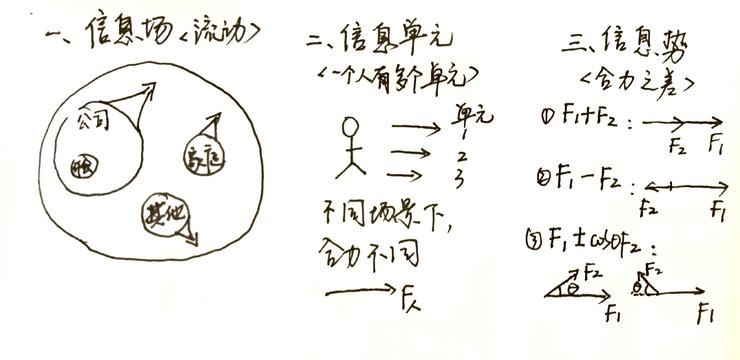 一、信息场<流动>
公司
家庭
其他
二、信息单元
<一个人有多个单元>
单元
1
2
3
不同场景下，
合力不同
F人
三、信息势
<合力之差>
① F₁+F₂：
F₂ F₁
② F₁-F₂：
F₂ F₁
③ F₁±cosθF₂：
F₂ θ F₁
F₂ θ F₁